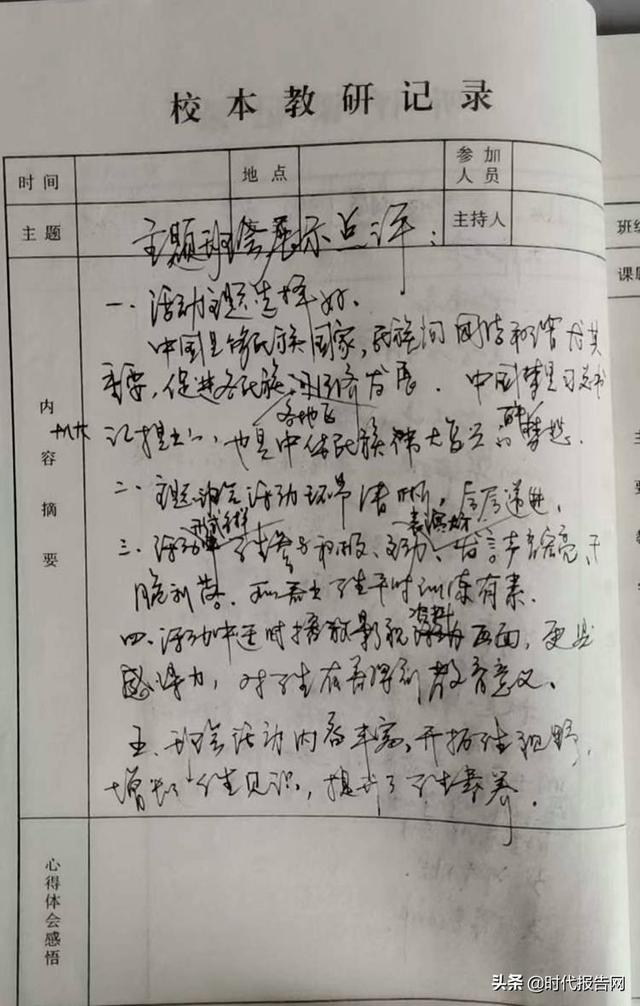 校本教研记录
时间 地点 参加人员
主题 主持人
主题班会展示点评：
内容摘要
一、活动主题选择好、
中国是多民族国家，民族间团结和谐尤其
重要，促进各民族 经济发展．中国梦是习总书
各地区
记提出 ，也是中华民族伟大复兴的梦想．
二、主题班会活动环节清晰，层层递进．
形式多样 表演大方
三、活动中学生参与积极、主动、发言声音宏亮、干
脆利落．可以看出学生平时训练有素．
四、活动中适时播放影视 画面，更具
感染力，对学生 教育意义．
五、班会活动内容丰富，开拓学生视野，
增长学生见识，提升了学生素养．
心得体会感悟
班级
课
主
头条 @时代报告网